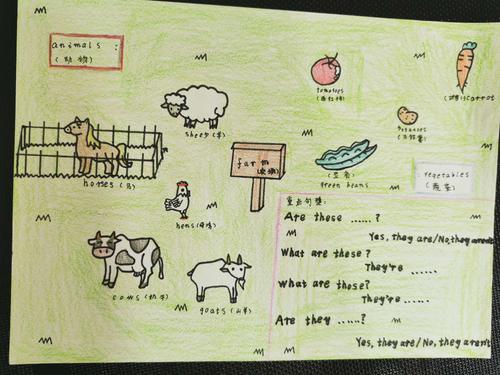 animals :
(动物)
tomatoes
(西红柿)
(胡萝卜)carrot
potatoes
(马铃薯)
sheep(羊)
farm
(农场)
(豆角)
green beans
vegetables
(蔬菜)
horses(马)
hens(母鸡)
cows(奶牛)
goats(山羊)
重点句型:
Are these ......?
Yes, they are/No, they aren't
What are these?
They're ......
What are those?
They're ......
Are they ......?
Yes, they are/No, they aren't